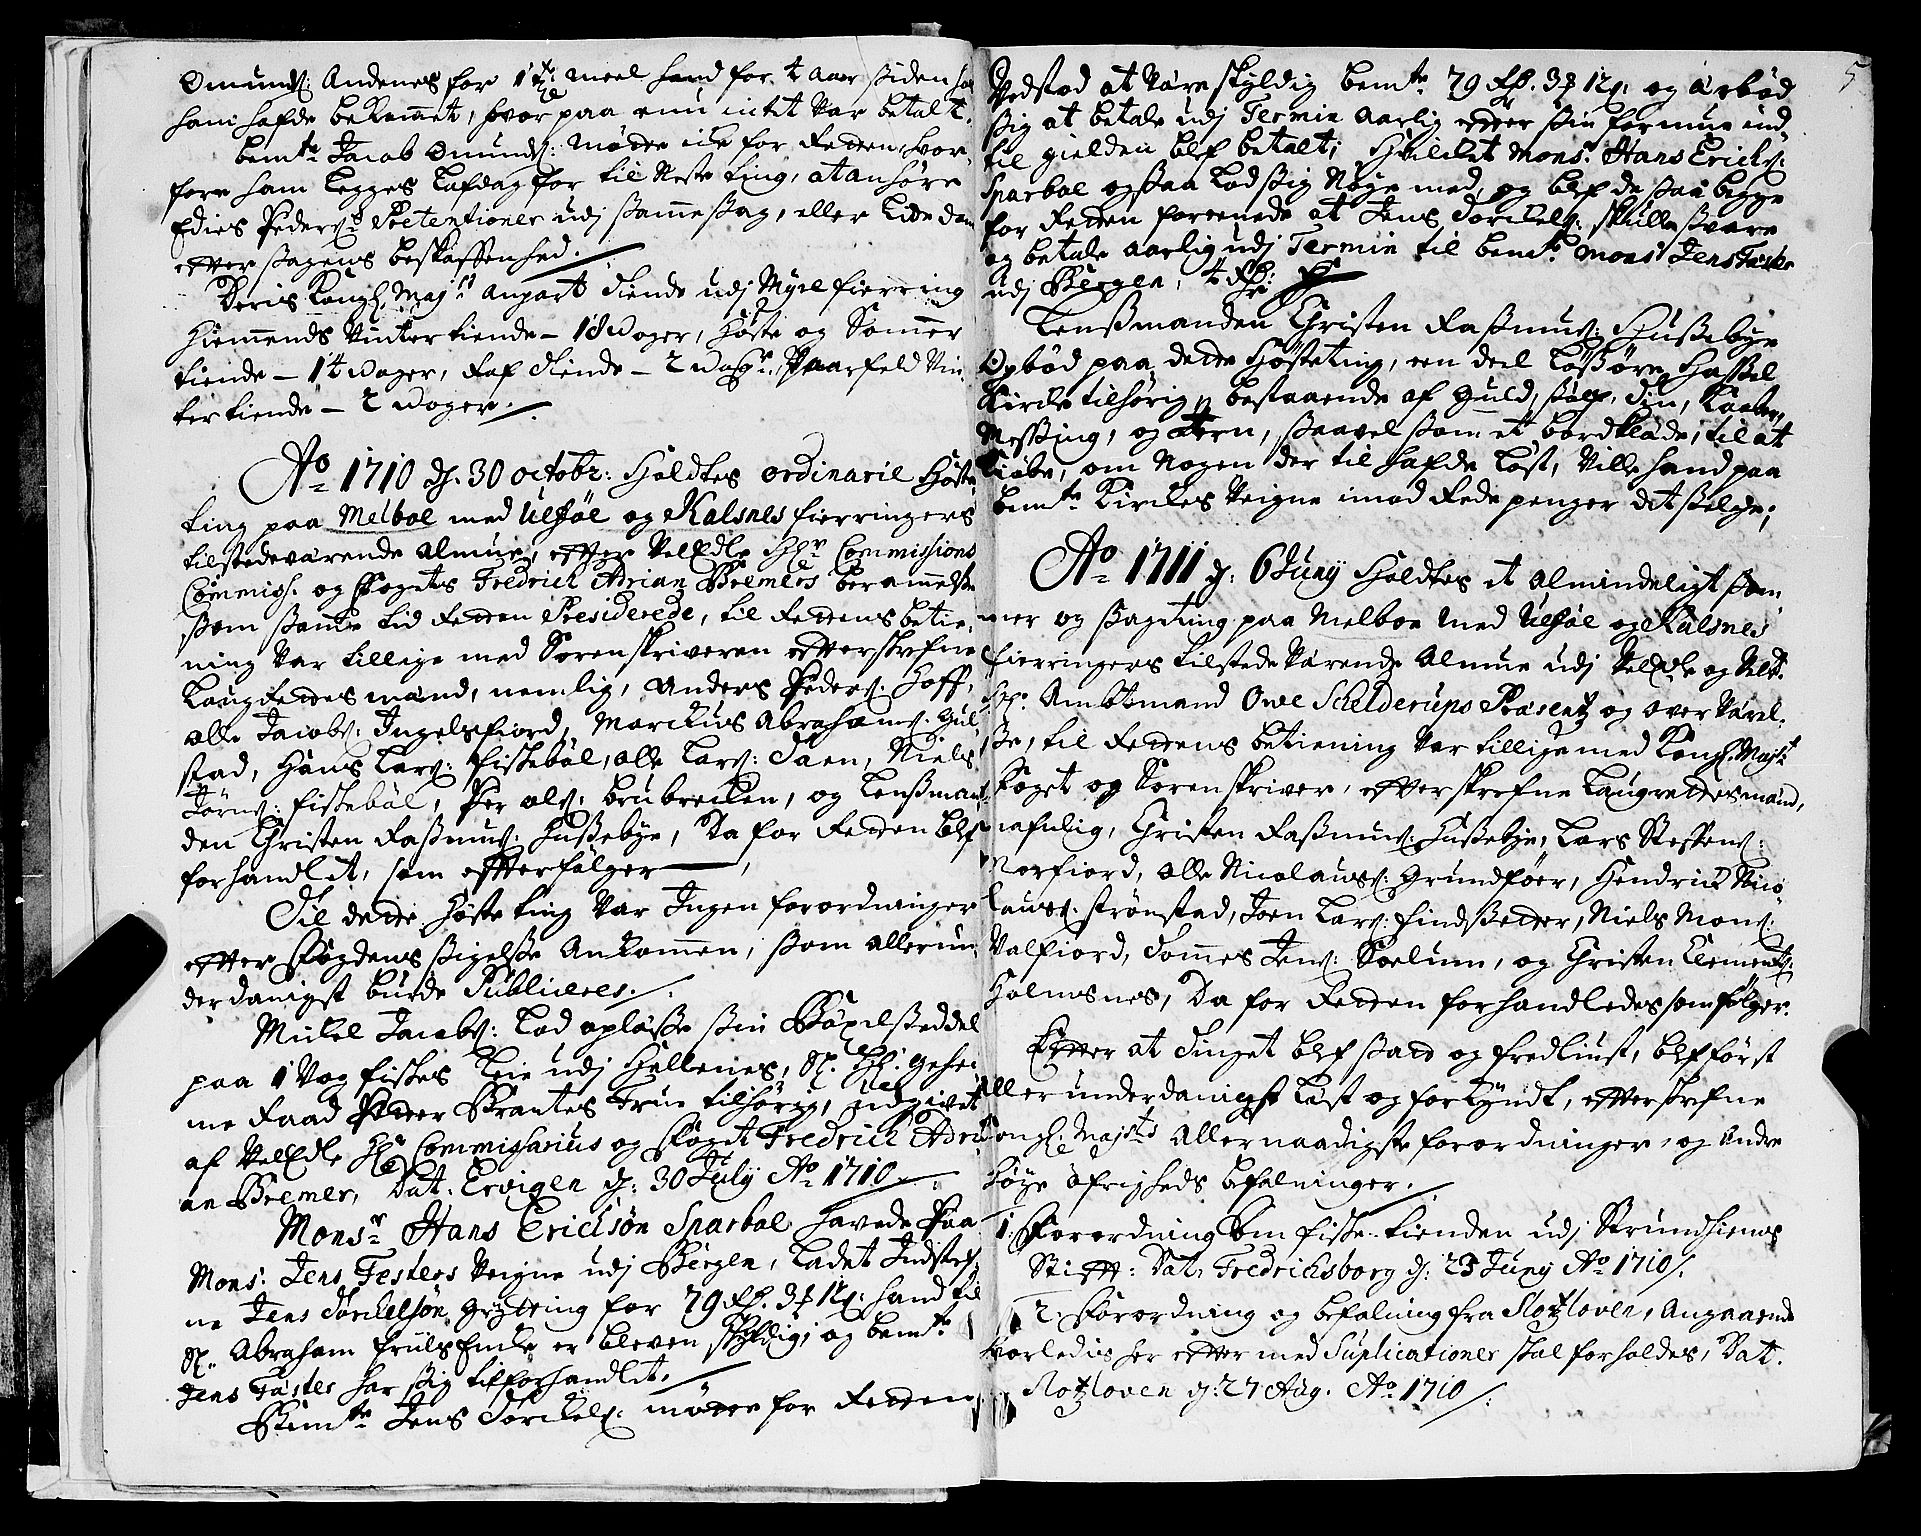 Omunds: Andenes for 1 tde: meel hand for 4 aar siden ham
ham hafde bekommet, hvor paa enu intet var betalt.
bemte Jacob Omunds: mødte icke for Retten, hvor-
fore ham legges lafdag for til Neste ting, at anhøre
Edies Peders: Prætentioner udj samme sag, eller lide dom
efter sagens beskaffenhed.
Deris Kongl. Majts anpart tiende udj Myre fierring
Hiemmends Vintertiende - 18 woger, Høste og Sommer
tiende - 14 woger, Raf tiende - 2 woger, Skaarfeld Vin-
tertiende - 2 woger.
Ao 1710 d. 30 octobr: Holdtes ordinarie Høste
ting paa Melboe med Ulføe og Kalsnes fierringers
tilstedeværende Almue, efter Velædle Hr Commissions
Commiss. og Fogets Fredrich Adrian Bremers berammelse
som samme tid Retten Presiderede, til Rettens betie-
ning var tillige med Sorenskriveren efterskrefne
Laugrettesmænd, nemlig, Anders Peders: Hoff,
Olle Jacobs: Ingelsfiord, Marckus Abrahams: Gul-
stad, Hans Lars: Fiskebøl, Olle Lars: Saen, Niels
Jørns: Fiskebøl, Per Ols: Brubrecken, og Lensman-
den Christen Rasmus: Hussebye, Da for Retten blef
forhandlet, som efterfølger
Til dette Høste ting var Ingen forordninger
efter Fogdens sigelse Ankommen, som allerun-
derdanigst burde Publiceres.
Mickel Jacobs: lod oplæsse sin Bøxelseddel
paa 1 Vog fiskes Leie udj Hellenes, Sl. Hr. Gehei-
me Raad Petter Brantes Frue tilhørig, udgivet
af Velædle Hr Commissarius og Foget Fredrich Adri
an Bremer, Dat. Ervigen d: 30 July Ao 1710.
Monsr Hans Ericksøn Sparboe havede Paa
Mons: Jens Festers Veigne udj Bergen, ladet Indstef-
ne Jens Torckelsøn Grytting for 79 Rd. 3 # 12 s: hand til
Sl. Abraham Friis Encke er bleven skyldig, og bemte
Jens Faster har sig tilforhandlet.
Bemte Jens Torckels: mødte for Retten
5
Vedstod at være skyldig bemte 79 Rd. 3 # 12 s. og erbød
sig at betale udj Termin aarlig efter sin formue ind-
til gielden blef betalt; Hvilcket Monsr Hans Ericks:
Sparboe ogsaa lod sig Nøye med, og blef de saa begge
for Retten foreenede at Jens Torckels: skulle svare
og betale aarlig udj Termin til bemte Monsr Jens Faste
udj Bergen, 4 Rd:
Lensmanden Christen Rasmus: Hussebye
Opbød paa dette Høsteting, een deel Løsøre Hassel
Kircke tilhørig, bestaaende af Guld, sølf, Tin, Kaaber,
Messing, og Jern, saavelsom et bordklæde, til at
kiøbe, om Nogen der til hafde løst, Ville hand paa
bemte Kirckes Veigne imod Rede penger det selge;
Ao 1711 d: 6 Juny Holdtes et Almindeligt som-
mer og sagting paa Melboe med Ulføe og Kalsnes
fierringers tilstede værende Almue udj Velædle og Velb.
Hr. Ambtmand Owe Schelderups Præsentz og overværel-
se, til Rettens betiening var tillige med Kongl. Majts
Foget og Sorenskriver, efterskrefne Laugrettesmænd,
nafnlig, Christen Rasmus: Hussebye, Lars Steffens:
Morfiord, Olle Nicolauss: Grundføer, Hendrick Nico
lauss: Strønstad, Joen Lars: Findsetter, Niels Mons:
Valfiord, Tommes Jens: Soelum, og Christen Clements:
Holmesnes, Da for Retten forhandledes som følger.
Efter at Tinget blef sadt og fredliust, blef først
Allerunderdanigst læst og forkyndt, efterskrefne
Kongl. Majsts Allernaadigste forordninger, og Andre
høye Øfrigheds befalninger.
1. Forordning Om fiske tienden udj Trundhiems
Stift: Dat. Fredrichsborg d: 23 Juny Ao 1710.
2. Forordning og befalning fra Slotzloven, Angaaende
Hvorledis her efter med Suplicationer skal forholdes, Dat.
Slotzloven d: 27 Aug. Ao 1710